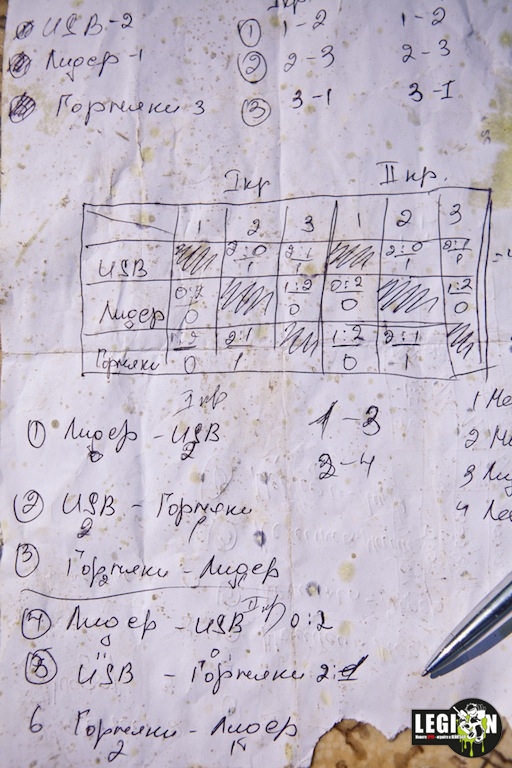 Iкр
USB-2 ① 1-2 1-2
Лидер-1 ② 2-3 2-3
Горняки 3 ③ 3-1 3-I
Iкр IIкр.
1 2 3 1 2 3
USB 2:0/1 2:1/1 2:0/1 2:1/1
Лидер 0:2/0 1:2/0 0:2/0 1:2/0
Горняки 1:2/0 2:1/1 1:2/0 2:1/1
Iкр
① Лидер - USB 1-3
0 2 2-4
② USB - Горняки
2 1
③ Горняки - Лидер
2 1
IIкр
④ Лидер - USB 0:2
⑤ USB - Горняки 2:1
6 Горняки - Лидер
2 1
1 Ме
2 М
3 Ли
4 Ле
LEGION